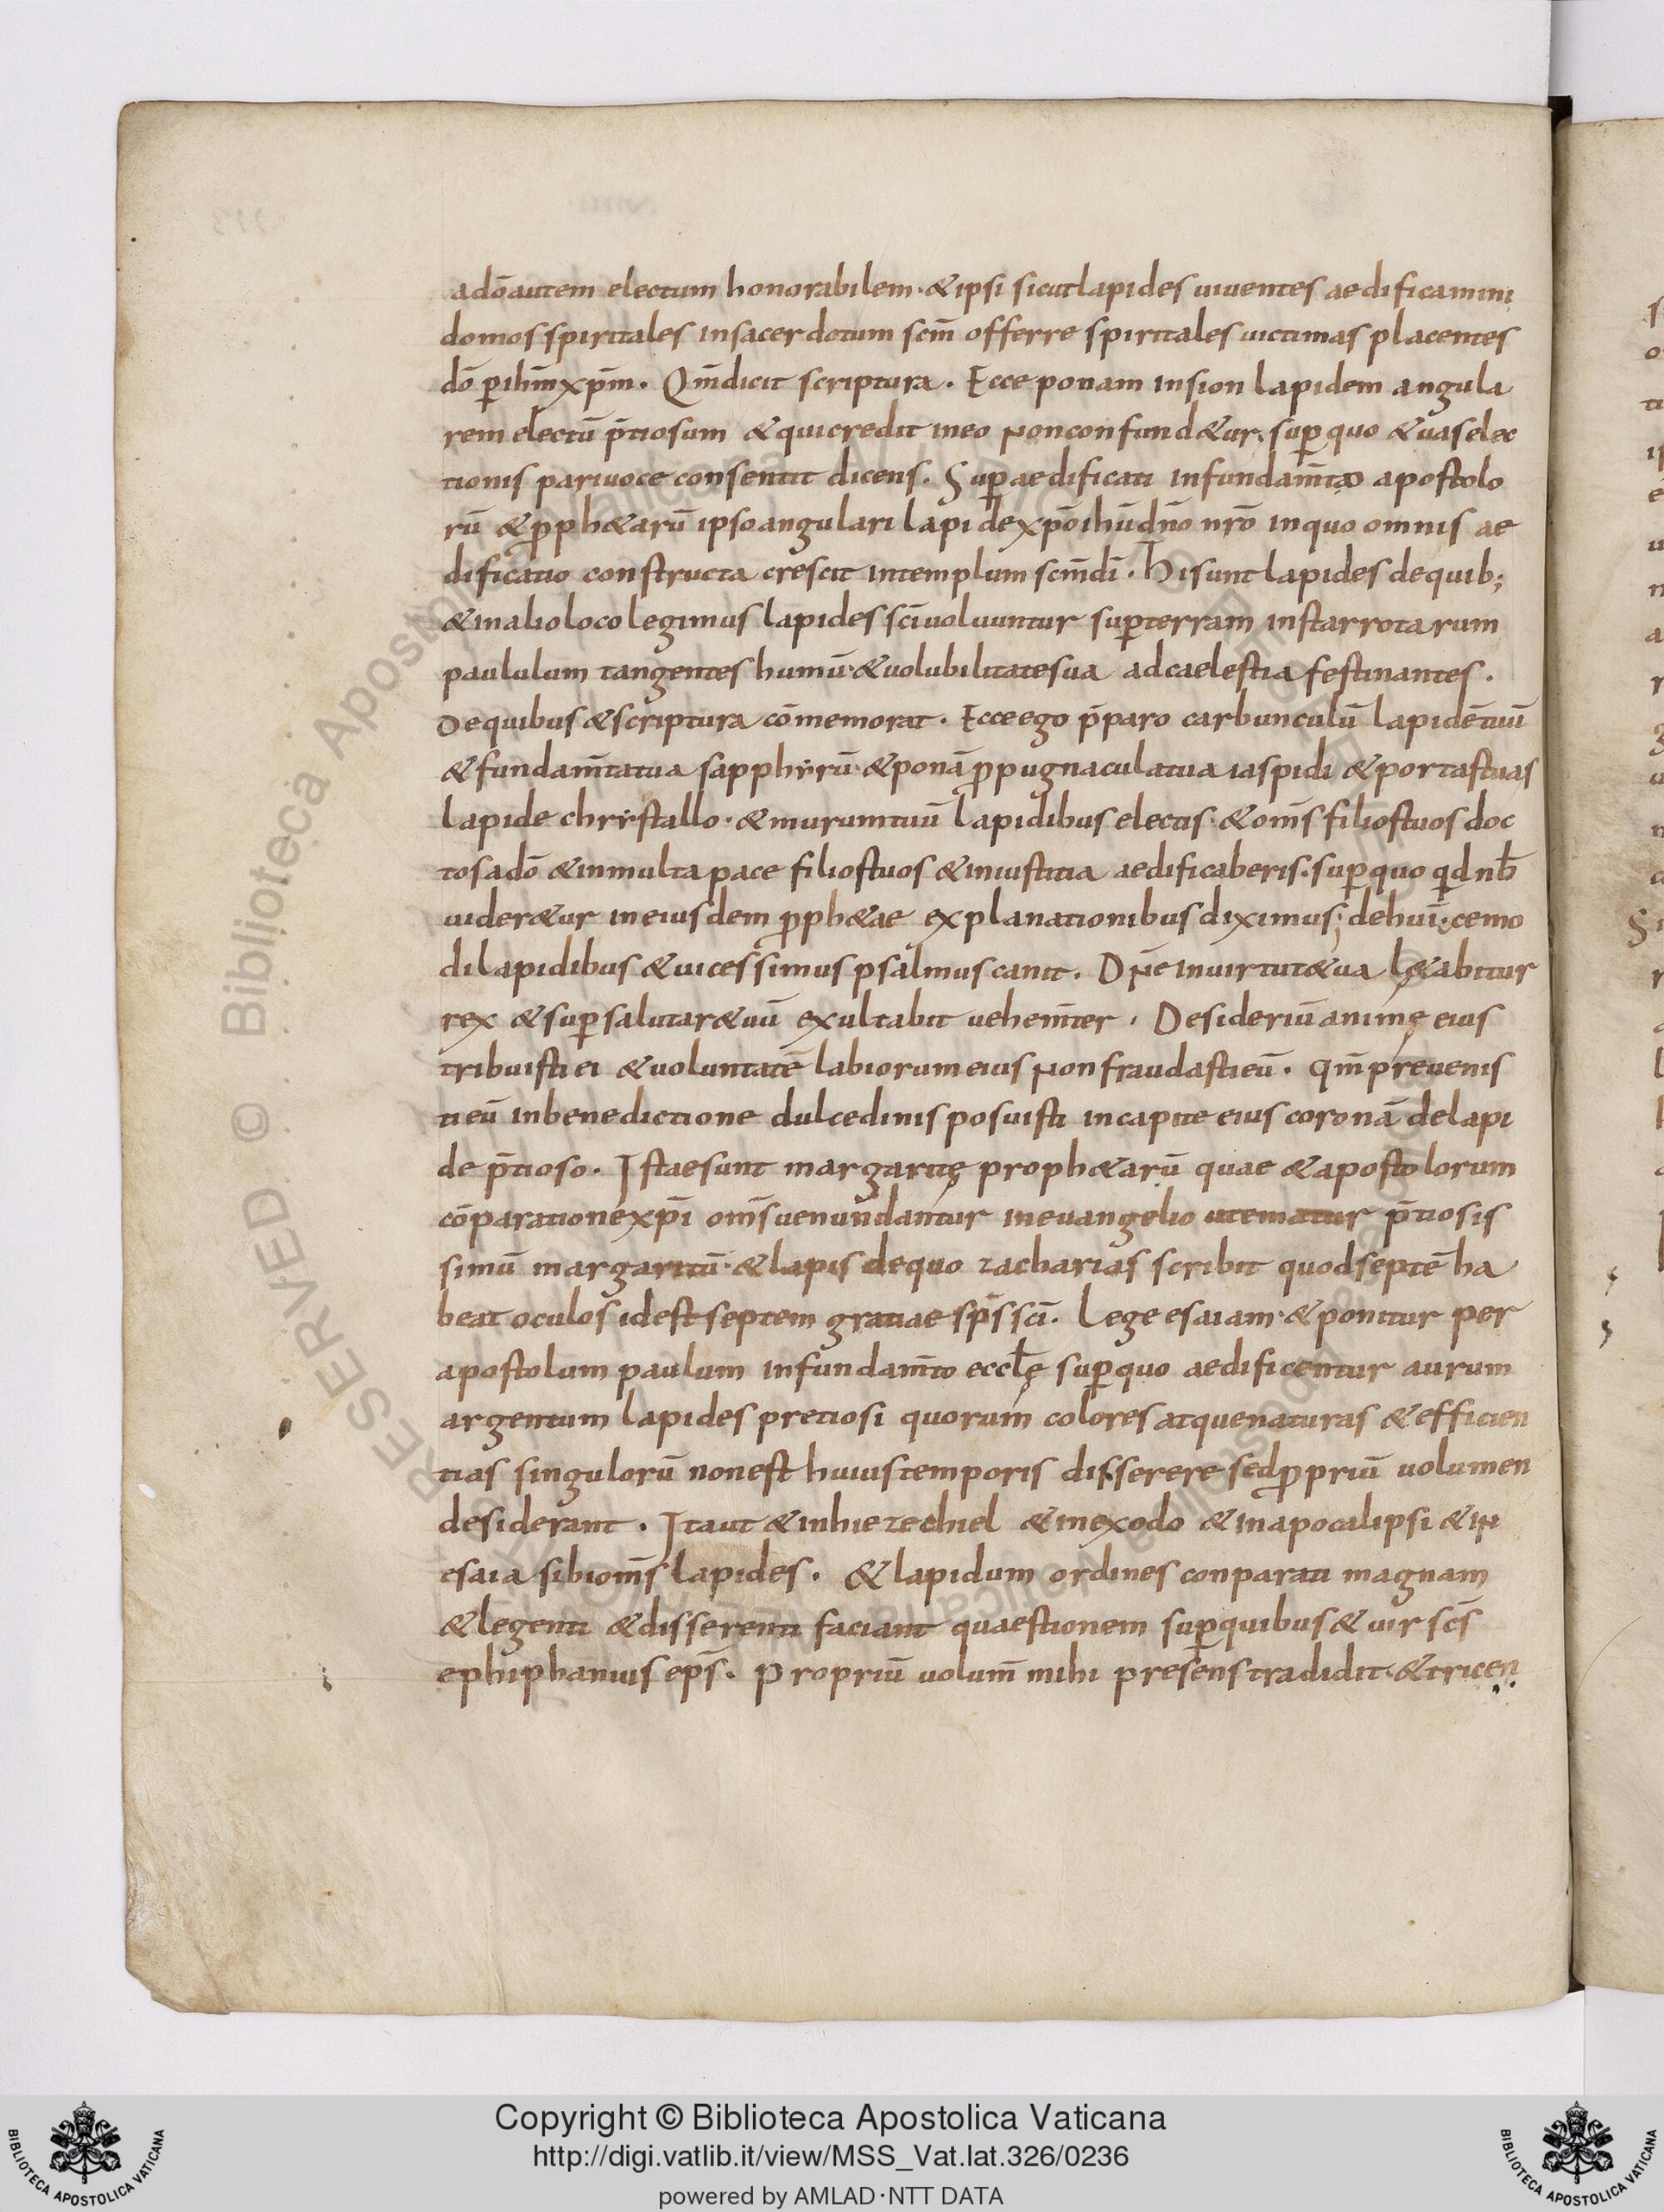 adō autem electum honorabilem · & ipsi sicut lapides uiuentes aedificamini
domos spiritales insacerdotum scm̄ offerre spiritales uictimas placentes
dō p̲ ihm̄ xpm̄. Qm̄ dicit scriptura. Ecce ponam insion lapidem angula
rem electū p̄tiosum & qui credit ineo non confund&ur. sup̲ quo & uas elec
tionis pari uoce consentit dicens. Sup̲ aedificati infundam̄to apostolo
rū & p̲ph&arū ipso angulari lapide xpō ihū dn̄o nrō inquo omnis ae
dificatio constructa crescit intemplum scm̄ dī. Hi sunt lapides dequib;
& in alio loco legimus lapides sc̄i uoluuntur sup̲ terram instar rotarum
paululum tangentes humū · & uolubilitate sua ad caelestia festinantes.
De quibus & scriptura cōmemorat. Ecce ego p̄paro carbunculū lapidē tuū
& fundam̄ta tua sapphẏrū · & ponā p̲pugnacula tua iaspidi & portas tuas
lapide chrẏstallo · & murum tuū lapidibus electis · & om̄s filios tuos doc
tos adō & in multa pace filios tuos & in iustitia aedificaberis. sup̲ quo qd nb̄
uider&ur in eiusdem p̲ph&ae explanationibus diximus; de huī;cemo
di lapidibus & uicessimus psalmus canit. Dn̄e in uirtut&ua l&abitur
rex & sup̲ salutar&uū exultabit uehem̄ter. Desideriū animę eius
tribuisti ei & uoluntatē labiorum eius non fraudasti eū. qm̄ pręuenis
ti eū in benedictione dulcedinis posuisti in capite eius coronā de lapi
de p̄tioso. Istae sunt margaritę proph&arū quae & apostolorum
cōparatione xp̄i om̄s uenundantur in euangelio ut ematur p̄tiosis
simū margaritū · & lapis de quo zacharias scribit quod septē ha
beat oculos id est septem gratiae sp̄s sc̄i. Lege esaiam · & ponitur per
apostolum paulum infundam̄to eccłę sup̲ quo aedificentur aurum
argentum lapides pretiosi quorum colores atque naturas & efficien
tias singulorū non est huius temporis disserere sed p̲priū uolumen
desiderant. Ita ut & in hiezechiel & in exodo & in apocalipsi & in
esaia sibi om̄s lapides. & lapidum ordines conparati magnam
& legenti & disserenti faciant quaestionem sup̲ quibus & uir sc̄s
ephiphanius ep̄s. Propriū uolum̄ mihi presens tradidit · & tricen
RESERVED © Biblioteca Apostolica Vaticana
Copyright © Biblioteca Apostolica Vaticana
http://digi.vatlib.it/view/MSS_Vat.lat.326/0236
powered by AMLAD·NTT DATA
BIBLIOTECA APOSTOLICA VATICANA
BIBLIOTECA APOSTOLICA VATICANA